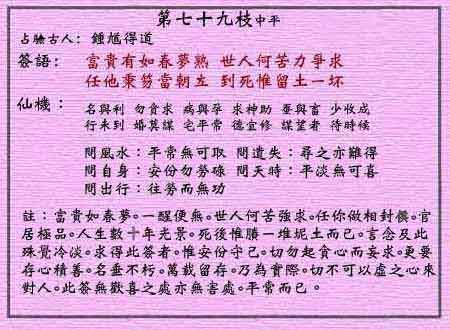 第七十九枝中平
占驗古人：鍾馗得道
籤語： 富貴有如春夢熟 世人何苦力爭求
任他秉笏當朝立 到死惟留土一坏
仙機： 名與利 勿貪求 病與孕 求神助 蚕與畜 少收成
行未到 婚莫謀 宅平常 德宜修 謀望者 待時候
問風水：平常無可取 問遺失：尋之亦難得
問自身：安份勿勞碌 問天時：平淡無可喜
問出行：往勞而無功
註：富貴如春夢。一醒便無。世人何苦強求。任你做相封侯。官
居極品。人生數十年光景。死後惟賸一堆坭土而已。言念及此
殊覺冷淡。求得此簽者。惟安份守己。切勿起貪心而妄求。更要
存心積善。名垂不朽。萬載留存。乃為實際。切不可以虛之心來
對人。此簽無歡喜之處亦無害處。平常而已。